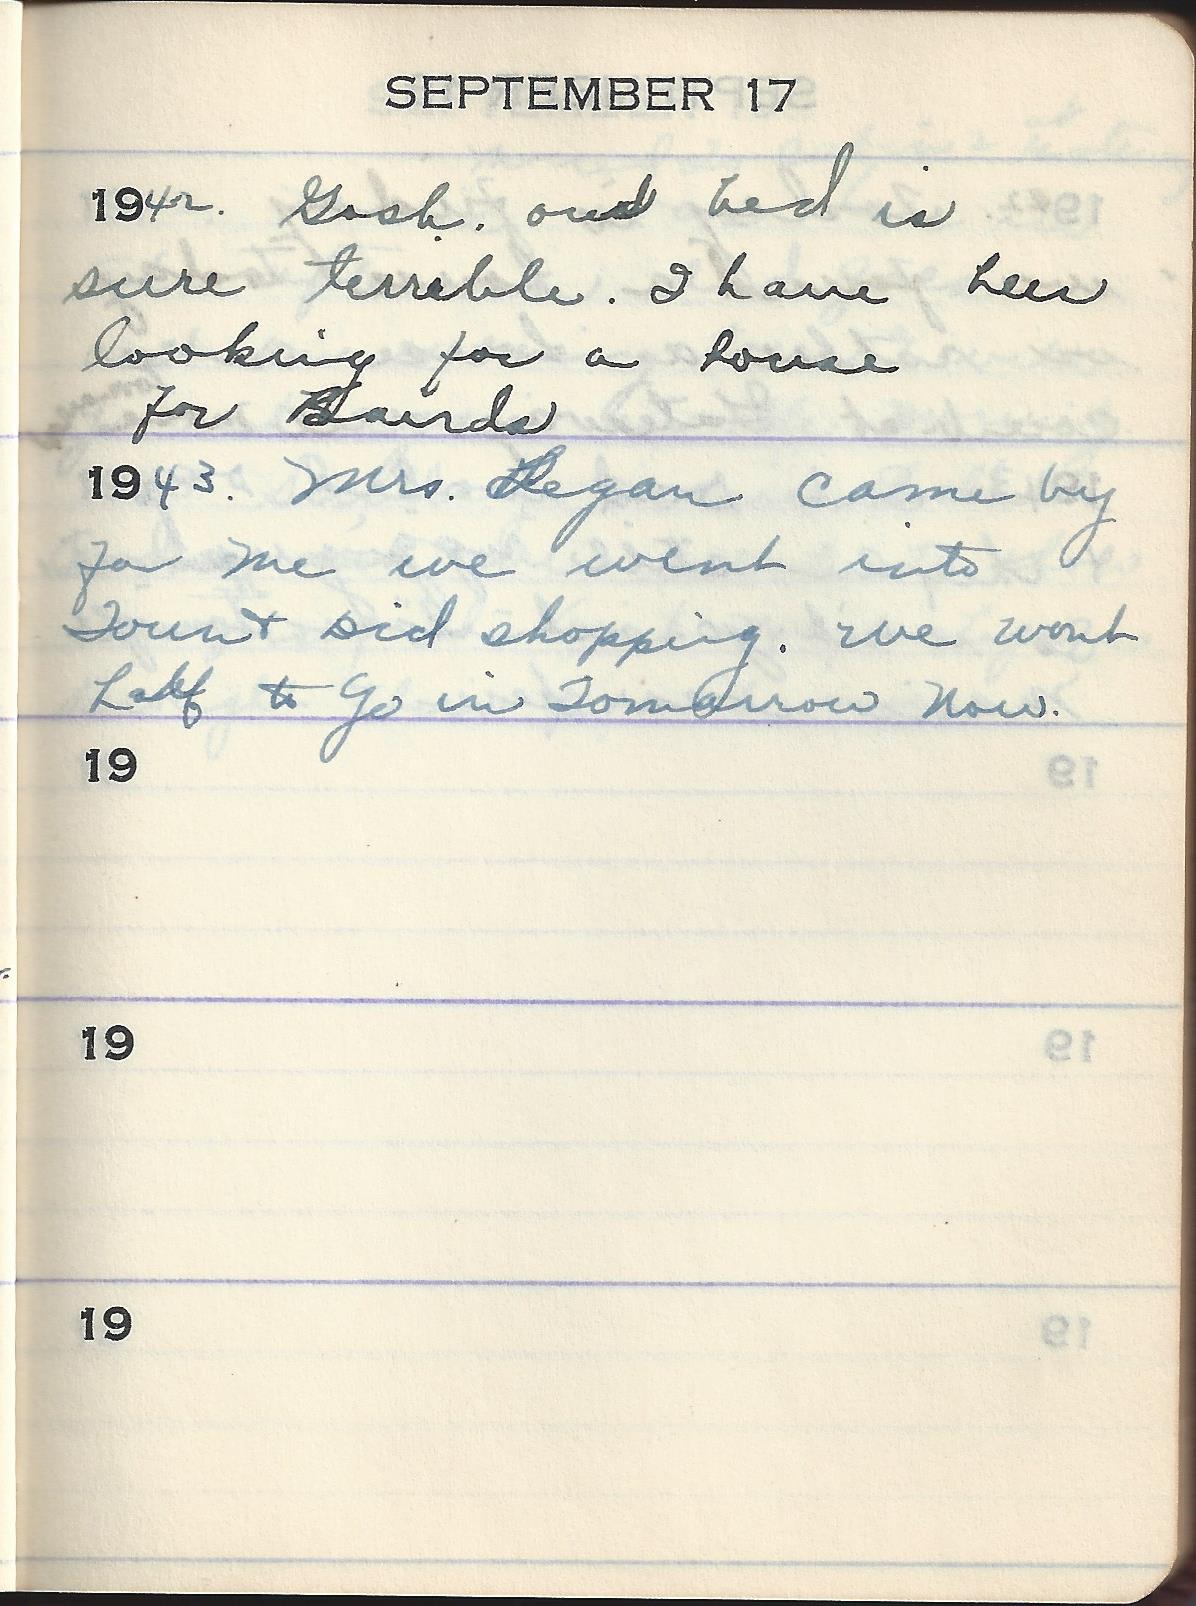 SEPTEMBER 17
1942. Gosh. our bed is
sure terrible. I have been
looking for a house
for Bairds
1943. Mrs. Regan came by
for me we went into
Town & did shopping. we wont
haf to Go in Tomarrow Now.
19
19
19